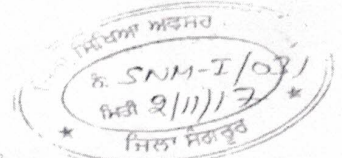 ਸਿੱਖਿਆ ਅਫਸਰ
ਨੰ. SNM-I/031
ਮਿਤੀ 2/11/17
ਜਿਲਾ ਸੰਗਰੂਰ